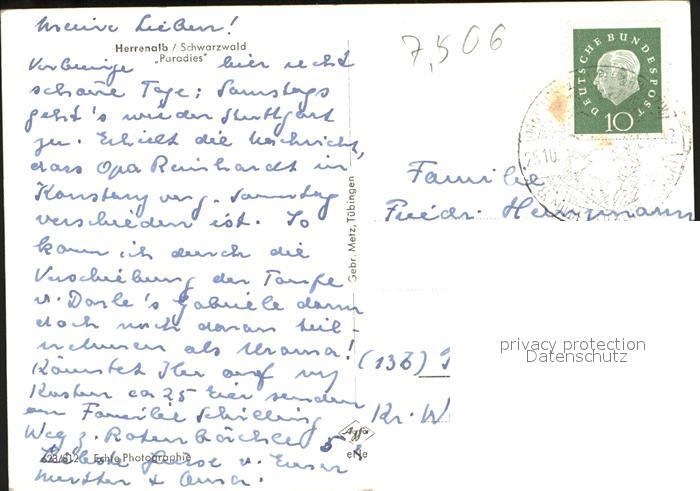 Meine Lieben!
Herrenalb / Schwarzwald
"Paradies"
Verbringe hier recht
schöne Tage; Samstags
geht's wieder Stuttgart
zu. Erhielt die Nachricht,
dass Opa Reinhardt in
Konstanz verg. Samstag
verschieden ist. So
kann ich durch die
Verschiebung der Taufe
v. Dorle's Gabriele dann
doch noch daran teil-
nehmen als Uroma!
Könntet Ihr auf m/
Kosten ca 25 Eier senden
an Familie Schilling
Weg z. Rohrbächle 5
Grüsse v. Eurer
Mutter + Oma.
623/812 Echte Photographie
Gebr. Metz, Tübingen
Agfa
7,506
DEUTSCHE BUNDESPOST
10
25.10.
Familie
Friedr. Herrmann
(13b)
Kr. W
privacy protection
Datenschutz